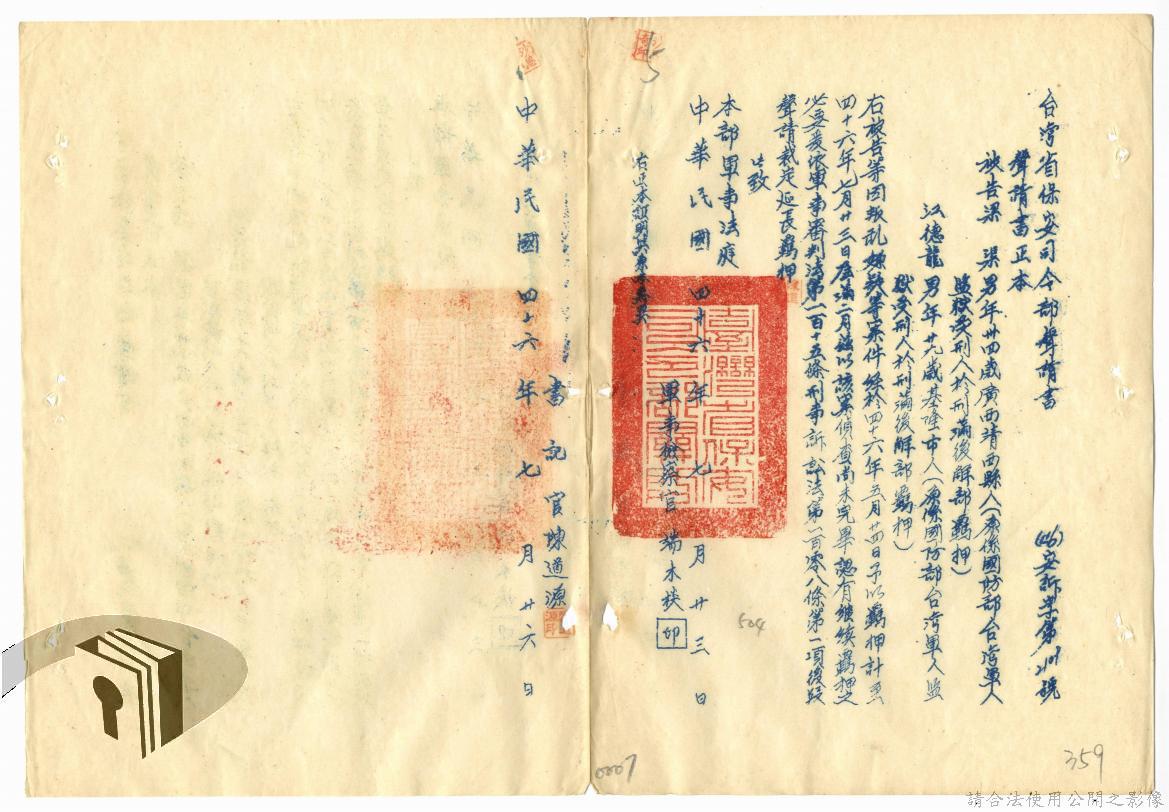 台湾省保安司令部聲請書 (46)安訴字第 號
聲請書正本
被告梁 渠 男年卅四歲廣西靖西縣人(原係國防部台湾軍人
監獄受刑人於刑滿後解部羈押)
江德龍 男年廿九歲基隆市人(原係國防部台湾軍人監
獄受刑人於刑滿後解部羈押)
右被告等因叛乱嫌疑等案件經於四十六年五月廿四日予以羈押計至
四十六年七月廿三日屆滿二月茲以該案偵查尚未完畢認有继续羈押之
必要爰依軍事審判法第一百十五條刑事訴訟法第一百零八條第一項後段
聲請裁定延長羈押
此致
本部軍事法庭
中華民國四十六年七月廿三日
軍事檢察官 端木棪 印
右正本証明與原本無異
書記官 陳道源
中華民國四十六年七月廿六日
504
359
0007
請合法使用公開之影像